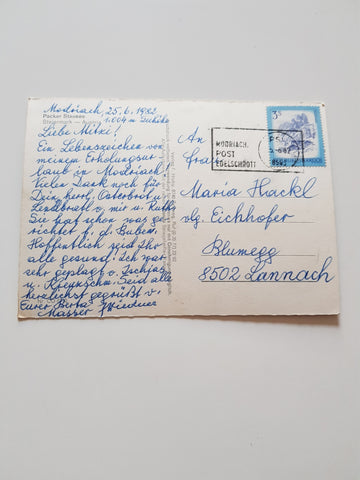 Modriach, 25.6.1982
Packer Stausee
Steiermark — Austria
1.004 m Seehöhe
Liebe Mitzi!
Ein Lebenszeichen von
meinem Erholungsur
laub in Modriach.
Vielen Dank noch für
Dein herzl. Osterbrot u.
u. Ruth.
Sie hat schon was ge
richtet f. d. Buben.
Hoffentlich seid Ihr
alle gesund. Ich war
sehr geplagt v. Ischias
u. Kreuzschm. Seid alle
herzlichst gegrüßt v.
Eurer Berta
MODRIACH,
POST
EDELSCHROTT
3 S
An
Frau
Maria Hackl
vlg. Eichhofer
Blumegg
8502 Lannach